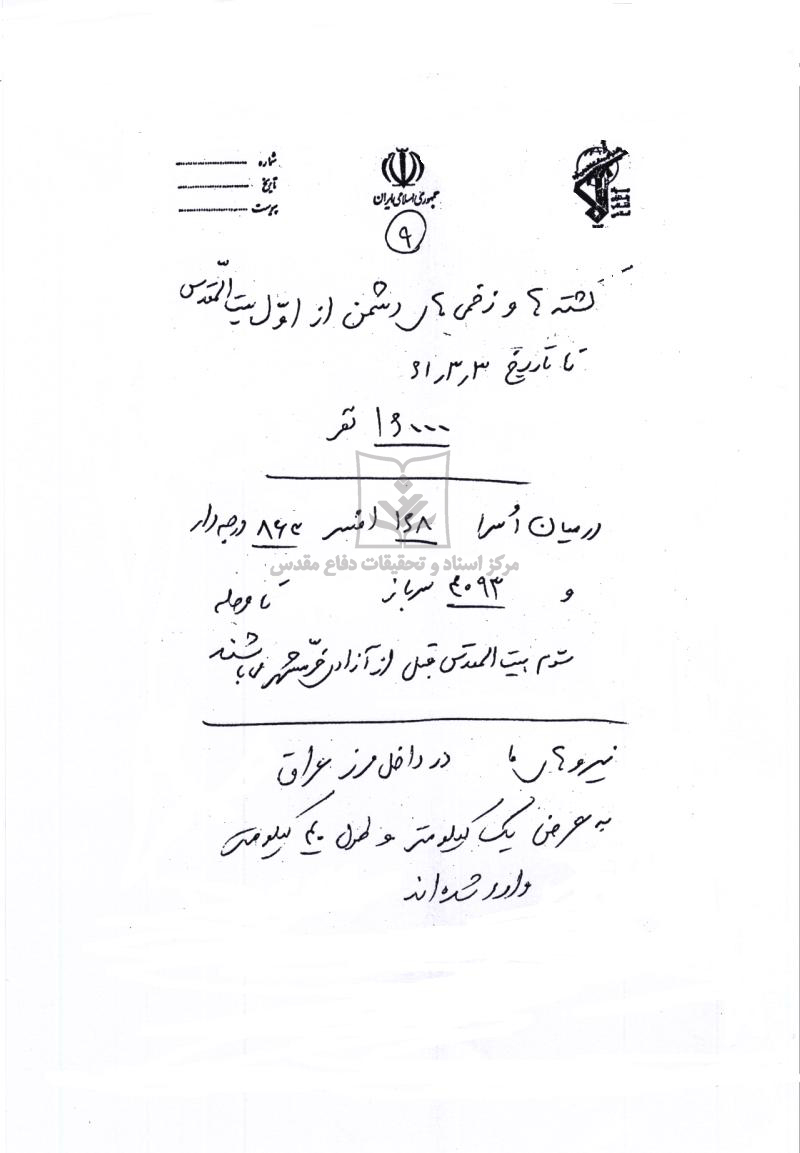 شماره
تاریخ
پیوست
جمهوری اسلامی ایران
۹
کشته ها و زخمی های دشمن از اوّل بیت المقدس
تا تاریخ ۶۱٫۳٫۳
۱۶۰۰۰ نفر
در میان اُسرا ۱۶۸ افسر ۸۶۴ درجه دار
و ۴۰۹۳ سرباز تا مرحله
مرکز اسناد و تحقیقات دفاع مقدس
سوم بیت المقدس قبل از آزادی خرّمشهر می باشند
نیروهای ما در داخل مرز عراق
به عرض یک کیلومتر و طول کیلومتر
وارد شده اند